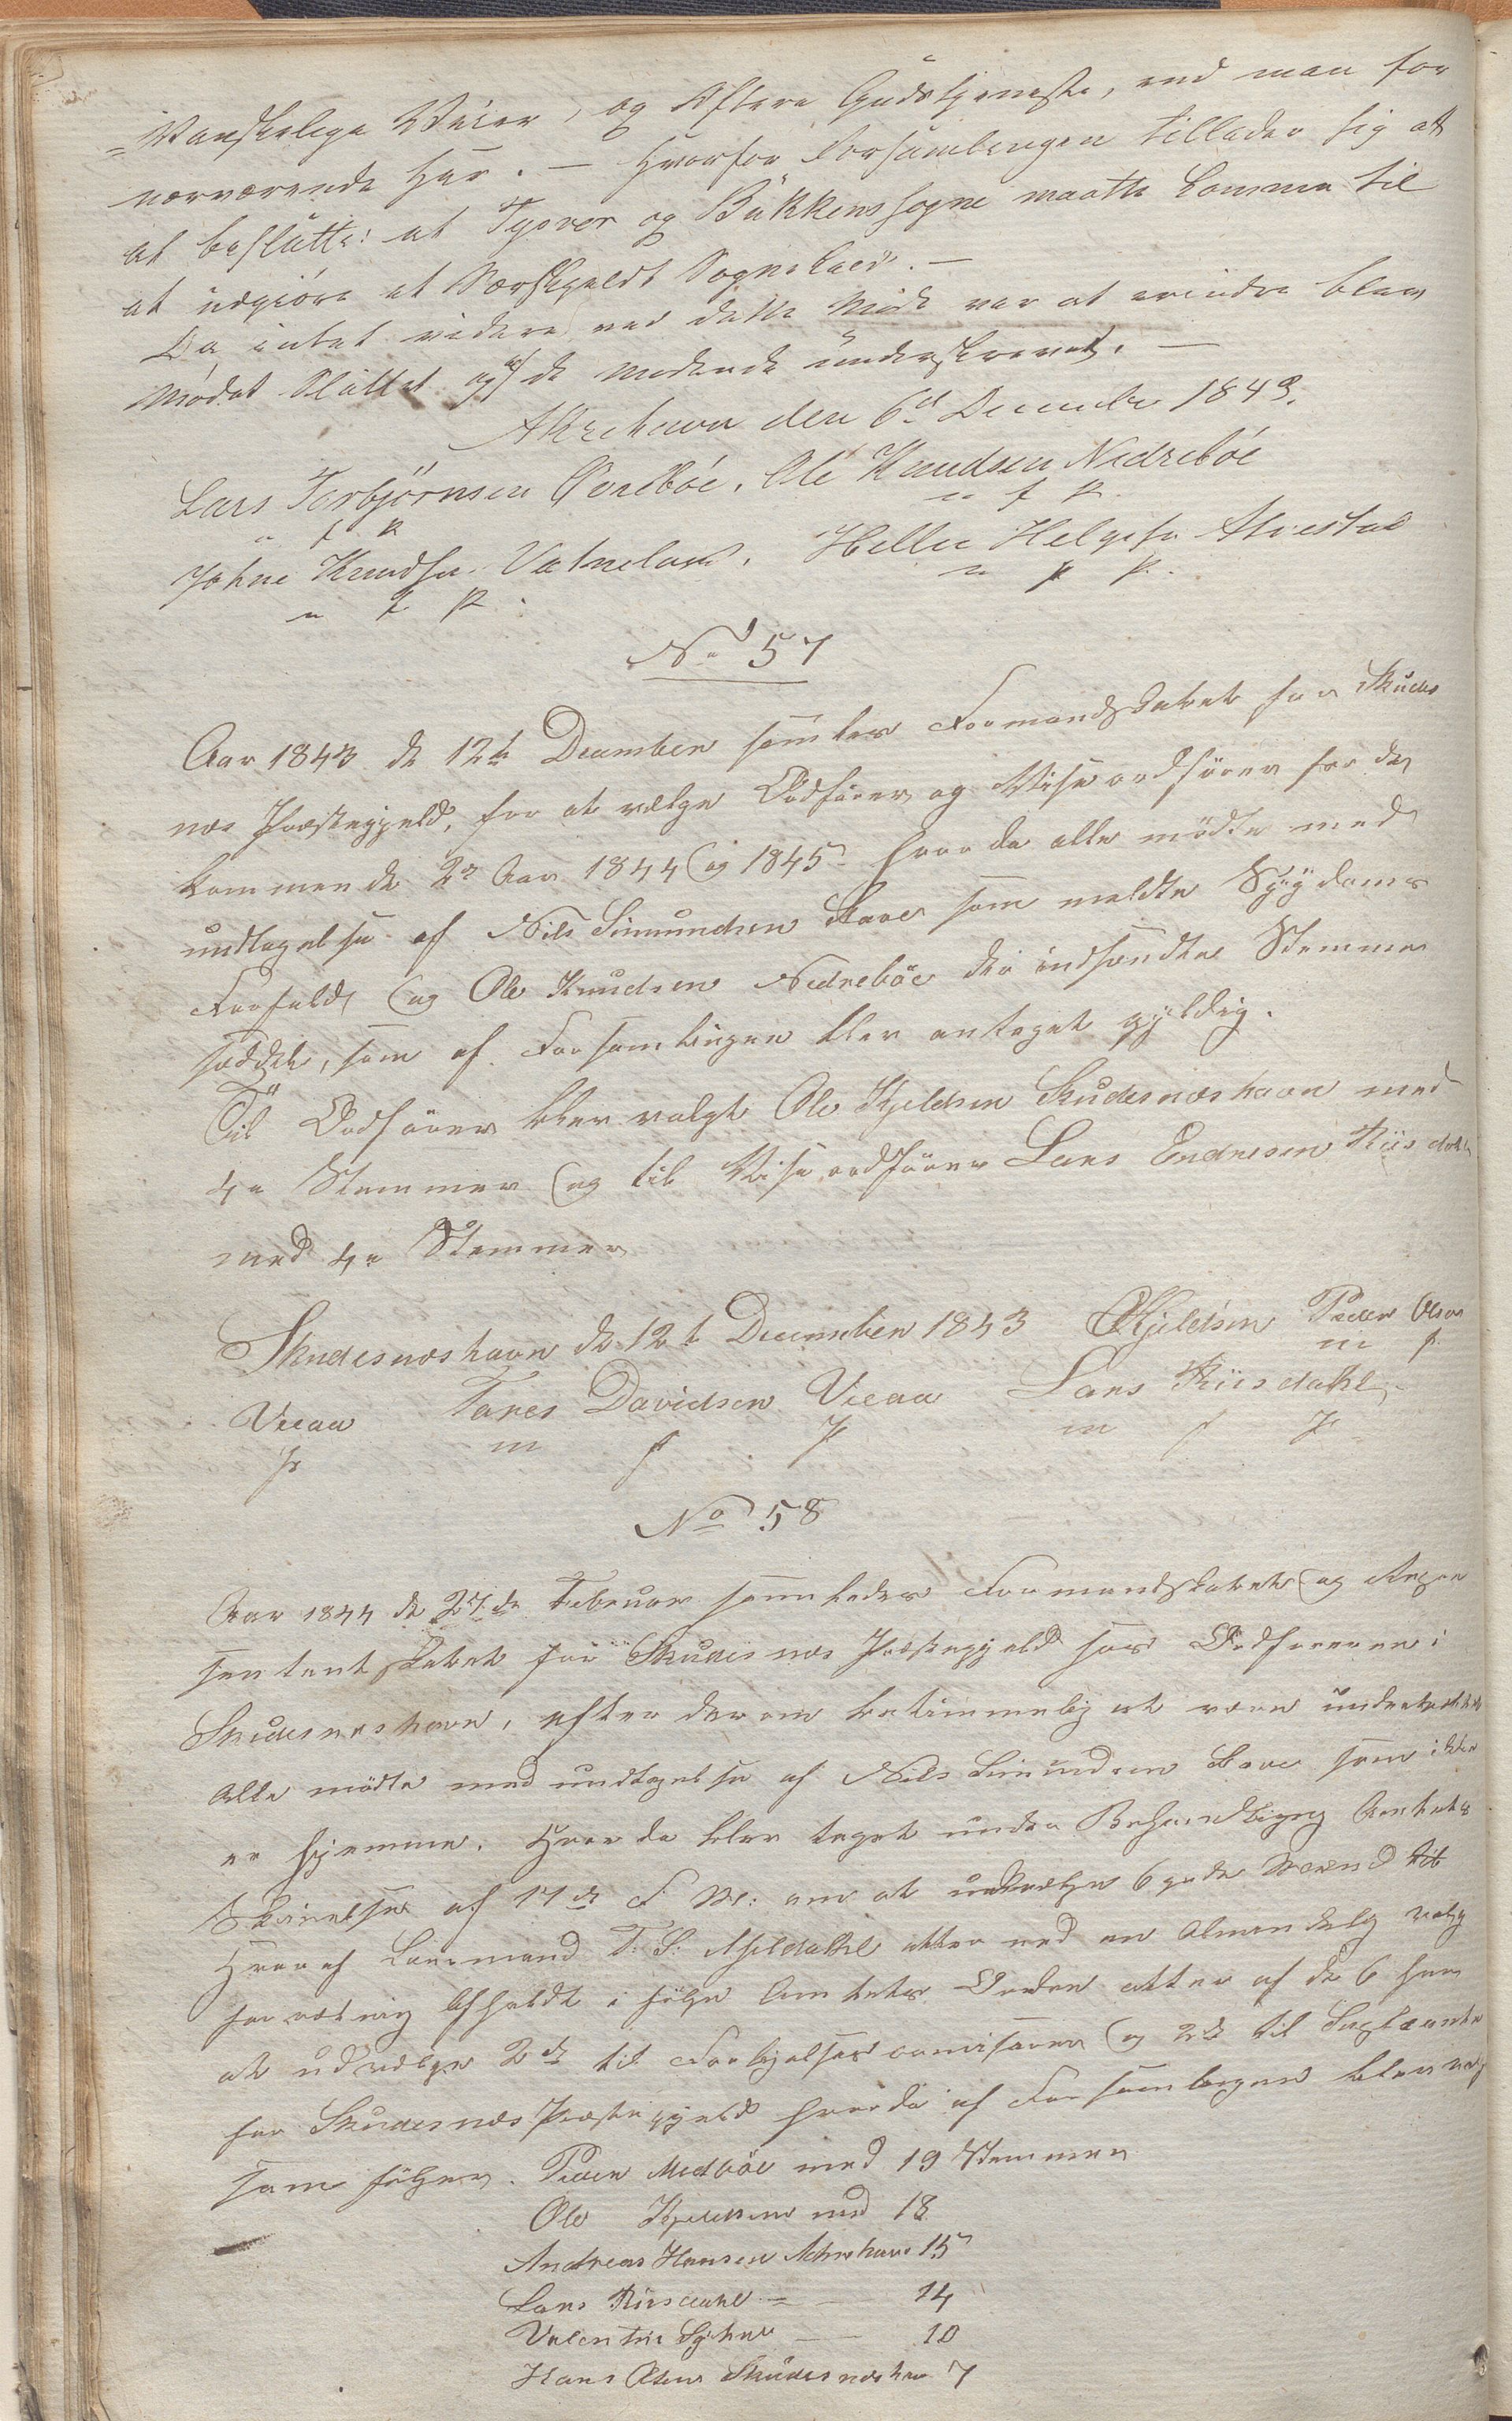 Vanskelige Veier, og Oftere Gudstjeneste, end man for
nærværende har. – Hvorfor Forsamlingen tillader sig at
at beslutte: at Tysver og Bukkens sogne maatte komme til
at udgiöre et Særskjeldt Sognekald. –
Da intet videre ved dette Möde var at erindre blev
Mödet Sluttet og af de Mødende underskrevet. –
Akrehavn den 6d December 1843.
Lars Torbjörnsen Öfreböe. Ole Knudsen Nedreböe
m f P
Johne Knudsen Vatneland. Helle Helgesen
m f P
No 57
Aar 1843 de 12te December samledes Formandskabet for Skudes
næs Præstegjeld, for at vælge Ordförer og Viseordförer for de
kommende 2de Aar 1844 og 1845 hvor da alle mödte med
undtagelse af Nils Simundsen som meldte Sygdoms
Forfald og Ole Knudsen Nedreböe der indsendte Stemme
seddel, som af Forsamlingen blev antaget gyldig.
Til Ordförer blev valgt Ole Kjeldsen Skudesnæshavn med
4 Stemmer og til Viseordförer Lars Endresen Riisdahl
med 4 Stemmer
Skudesnæshavn de 12te December 1843 OKjeldsen Peder Olsen
m f
Vicaa Tares Davidsen Vicaa Lars Riisdahl
P m f P m f P
No 58
Aar 1844 de 27de Februar samledes Formandskabet og Repre
sentantskabet for Skudesnæs Præstegjeld hos Ordföreren i
Skudesnæshavn, efter derom betimmelig at være underrettet
Alle mödte med undtagelse af Nils Simundsen som ikke
er hjemme. Hvor da blev taget under Behandling Amtets
Skrivelse af 17de d. M: om at udvælge 6 gode Mænd
Hvoraf Lensmand T: S: Mjeldahl atter ved en Almindelig valg
forretning Afholdt i fölge Amtets Orden atter af de 6 har
at udvælge 2de til Forligelseskomisærer og 2de til Suplianter
for Skudesnæs Præstegjeld hvor da af Forsamlingen blev valg
som fölger. Peder Medböe med 19 Stemmer
Ole Kjeldsen med 18
Andreas Hansen Akrehavn 15
Lars Riisdahl – 14
Valentin – 10
Hans Olsen Skudesnæshavn 7